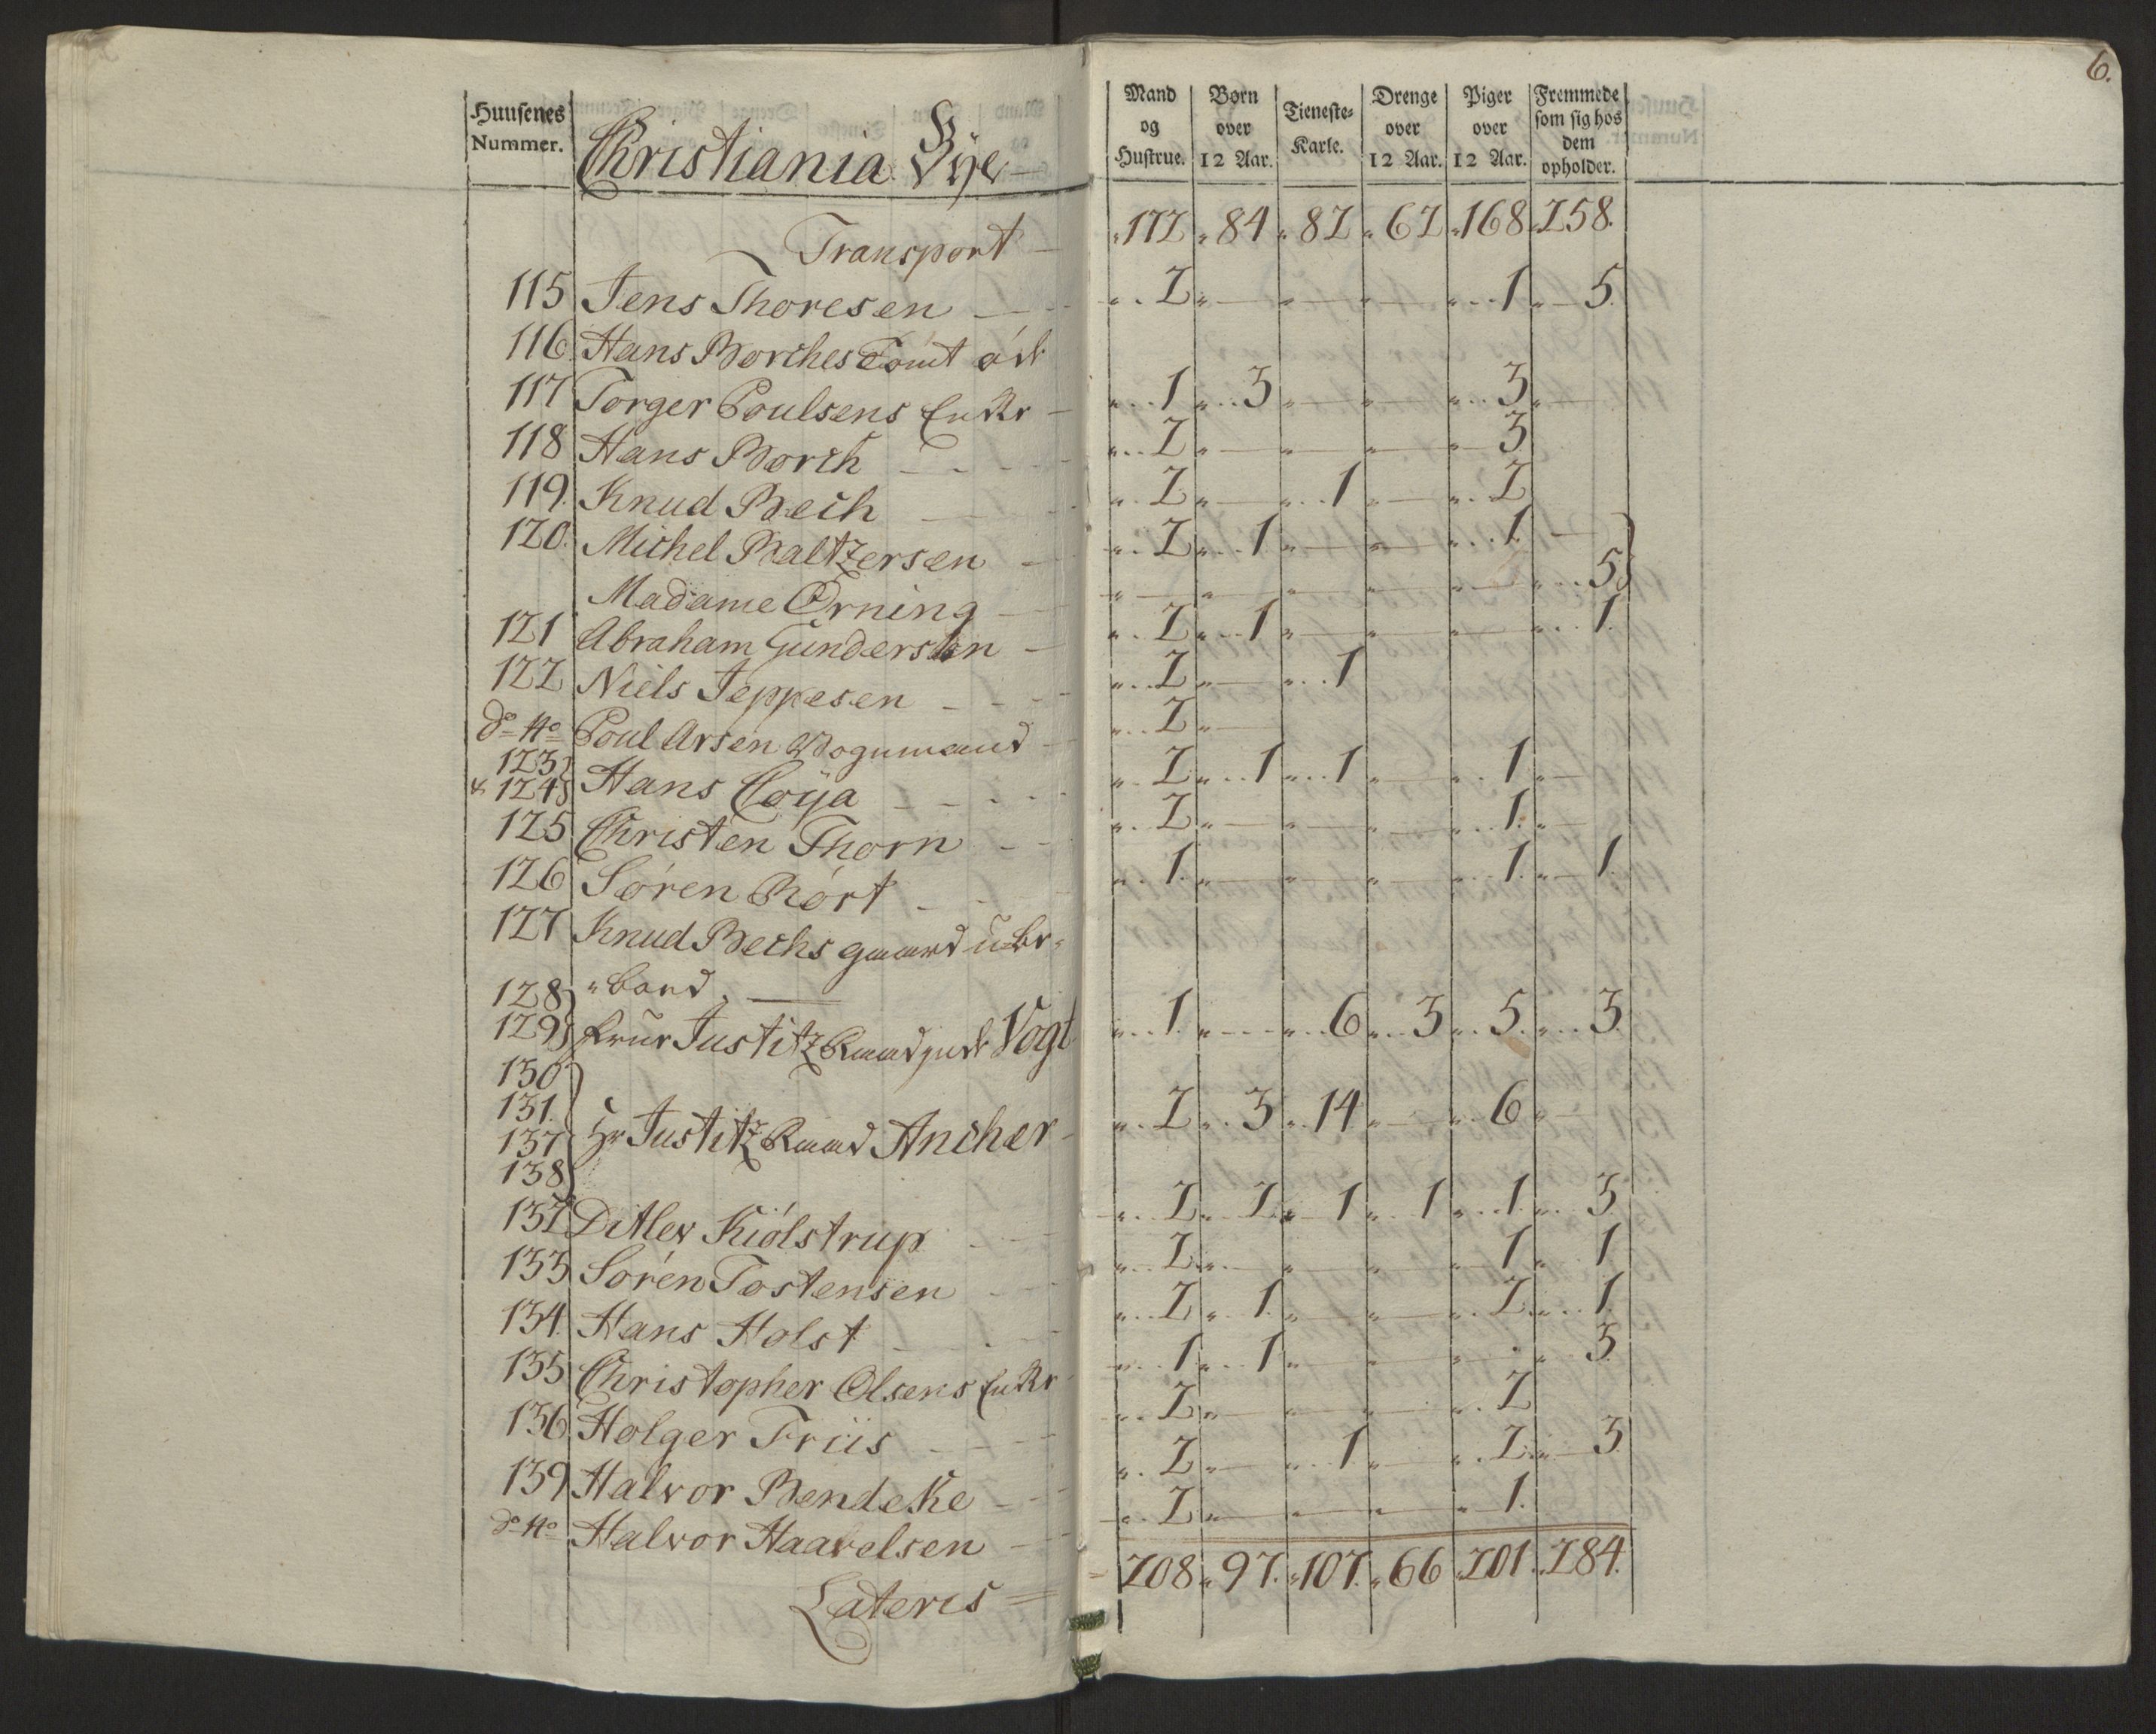 6.
Huusenes Nummer.
Christiania Bye
Mand og Hustrue.
Børn over 12 Aar.
Tieneste-Karle.
Drenge over 12 Aar.
Piger over 12 Aar.
Fremmede som sig hos dem opholder.
Transport 172 84 82 62 168 258.
115 Jens Thoresen 2 1 5.
116. Hans Borches Tomt öde
117 Torger Poulsens Enke 1 3 3
118 Hans Borch 2 3
119. Knud Bech 2 1 2
120. Michel Baltzersen 2 1 1
Madame Örning 5
121 Abraham Gundersen 2 1 1
122 Niels Jeppesen 2 1
do No Poul Arsen Vognmand 2
123 & 124 Hans Coÿa 2 1 1 1
125 Christen Thorn 2 1
126 Sören Kört 1 1 1
127 Knud Bechs gaard ube-
boed.
128 129 Frue Justitz Raadinde Vogt 1 6 3 5 3
130 131 137 138 Hr Justitz Raad Ancher 2 3 14 6
132 Ditlev Kiölstrup 2 2 1 1 1 3
133 Sören Tostensen 2 1 1
134. Hans Holst 2 1 2 1
135 Christopher Olsens Enke 1 1 3
136 Holger Friis 2 2
139 Halvor Bendeke 2 1 2 3
do No Halvor Haavelsen 2 1
Lateris 208 97. 107. 66 201. 284.